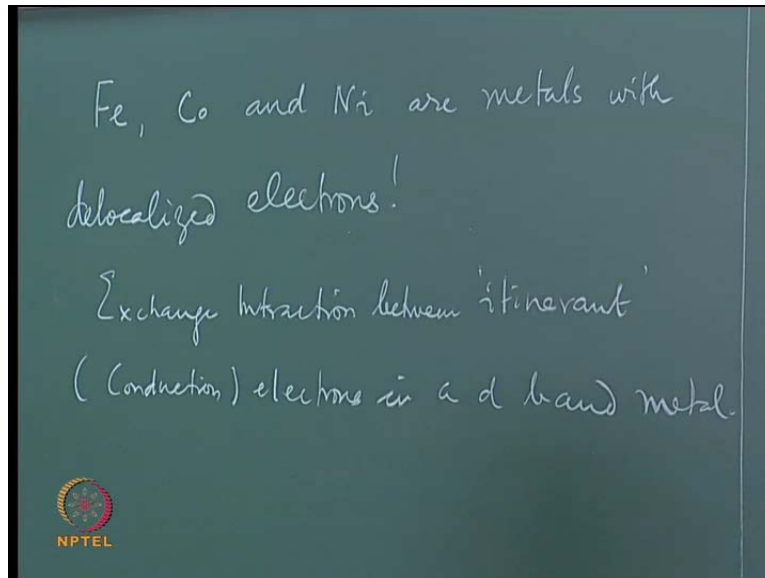 Fe, Co and Ni are metals with
delocalized electrons!
Exchange Intraction between 'itinerant'
(Conduction) electrons in a d band metal.
NPTEL